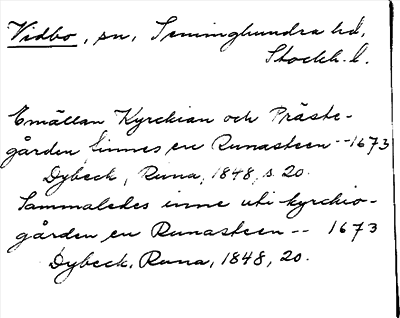 Vidbo, sn, Seminghundra hd,
Stockh. l.
Emällan Kyrckian och Präste-
gården finnes en Runasteen -- 1673
Dybeck, Runa, 1848, s. 20.
Sammaledes inne uti kyrckio-
gården en Runasteen -- 1673
Dybeck, Runa, 1848, 20.